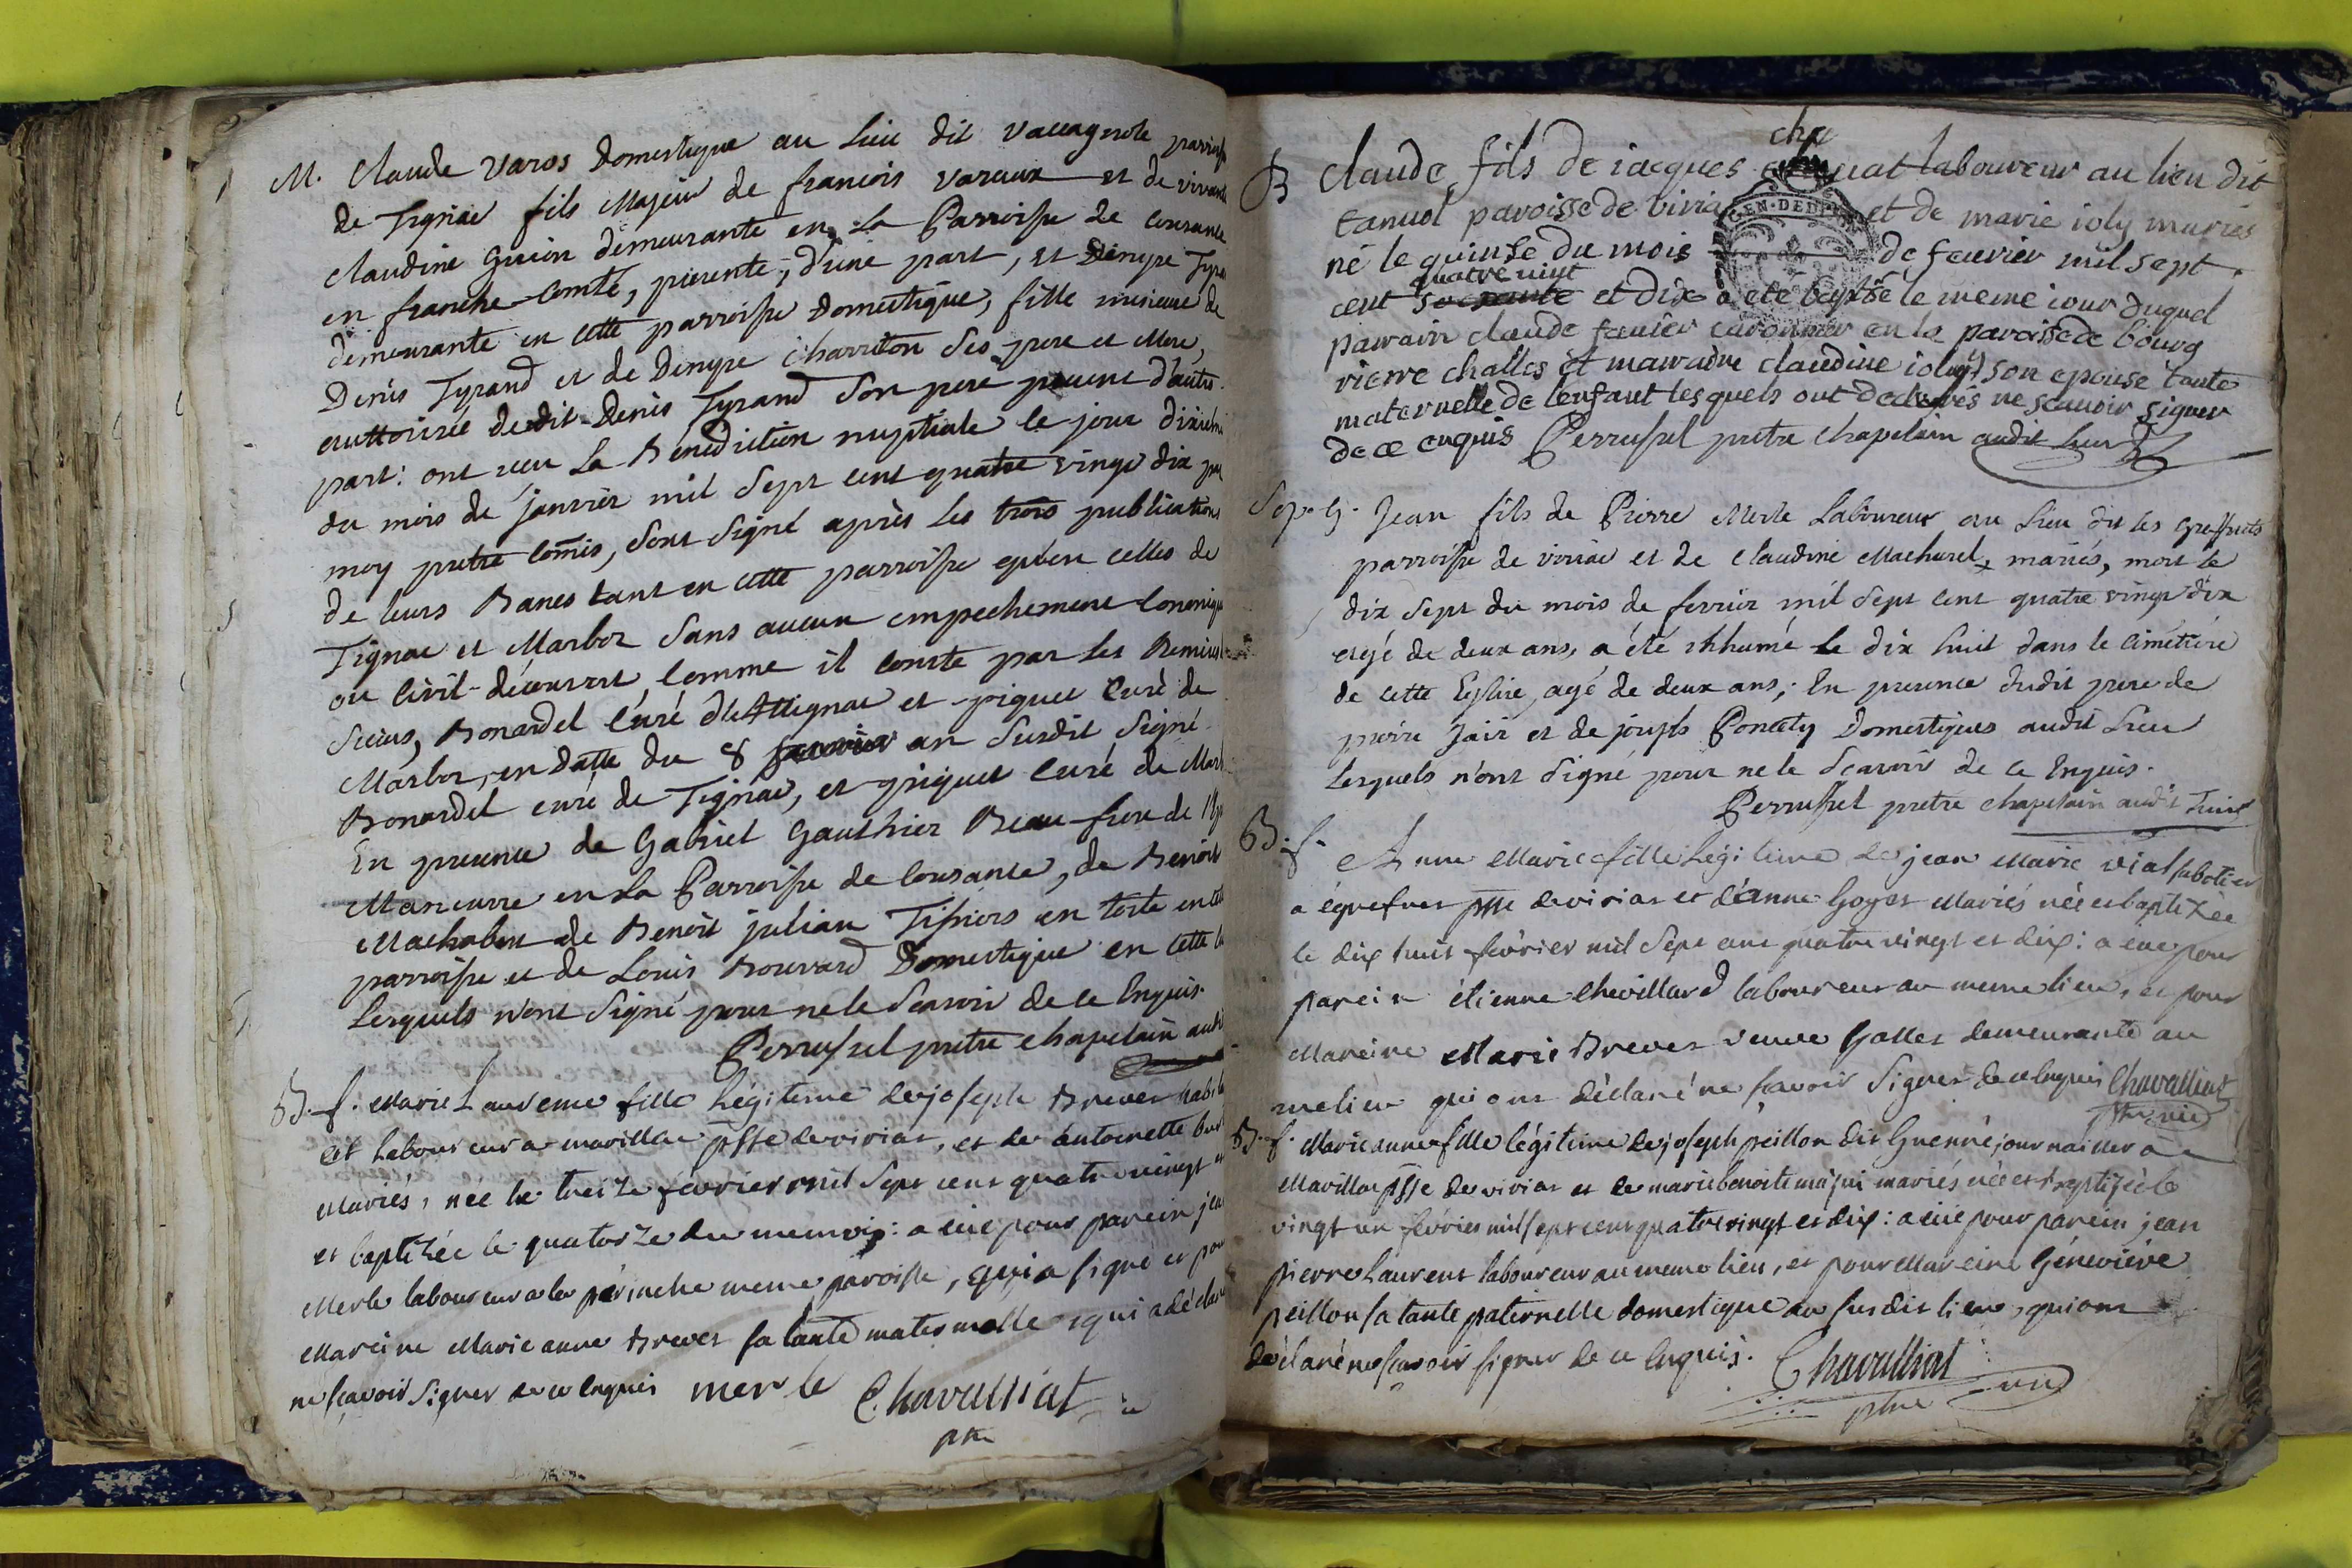 M. Claude Varos Domestique au Lieu dit
de Tignac fils Majeur de francois varaux et de vivante
Claudine Guion demeurante en La Parroisse de Cousance
en franche-Comté, presente, d'une part, et Denyse
demeurante en cette parroisse Domestique, fille mineure de
Denis Tyrand et de Denyse Charriton Ses pere et Mere,
authorisée dedit Denis Tyrand Son pere present d'autre
part: ont recu La Benediction nuptiale le jour dixieme
du mois de janvier mil Sept cent quatre vingt dix par
moy pretre Comis, Sous Signé après Les trois publications
de leurs Bancs tant en cette parroisse qu'en celles de
Tignac et Marboz Sans aucun empechement
ou Civil découvert, Comme il Conste par Les
Bonardel Curé d'Attignac et piquet Curé de
Marboz, en datte du 8 janvier an Susdit Signé
Bonardel curé de Tignac, et piquet Curé de
En presence de Gabriel Gauthier Beau-frere de
Maneuvre en La Parroisse de Cousance, de Benoit
de Benoit julian Tissiers en toile en
parroisse et de Louis Bouvard Domestique en cette
Lesquels n'ont Signé pour ne le Scavoir de ce Enquis.
Perrussel pretre chapelain
B. f. Marie Laurence fille Légitime de joseph Brevet
et Laboureur a marillac psse de viriat, et de antoinette
Mariés, née le treize février mil Sept cent quatre vingt
et baptizée le quatorze du meme mois: a eue pour parein
Merle laboureur a la perinche meme paroisse, qui a signé et pour
Mareine Marie anne Brevet sa tante maternelle qui a déclaré
ne scavoir Signer de ce enquis merle Chavalliat
ptre
cha
B Claude fils de iacques uat laboureur au lieu dit
tanuol paroisse de et de marie ioly mariés
né le quinse du mois de feuvrier mil sept
quatre vint
cent et dix a ete baptisé le meme iour duquel
parrain claude feuvier en la paroisse de bourg
vierre challes et marradne claudine ioly son epouse tante
maternelle de l'enfant lesquels ont declarés ne scauoir signer
de ce enquis Perrussel pretre chapelain audit Lieu
Sep. g. Jean fils de Pierre Merle Laboureur au Lieu dit les
parroisse de viriac et de Claudine Machurel, mariés, mort le
dix Sept du mois de fevrier mil Sept Cent quatre vingt dix
agé de deux ans, a été ihhumé le dix huit dans le Cimétière
de cette Eglise, agé de deux ans; En presence dudit pere de
pierre Jair et de joseph Poncety Domestiques audit Lieu
Lesquels n'ont Signé pour ne le Scavoir de ce Enquis.
Perrussel pretre chapelain audit Lieu
B. f. Anne Marie fille Légitime de jean Marie vial sabotier
a psse de viriat et d'anne Goyet Mariés née et baptizée
le dix huit février mil Sept cent quatre vingt et dix: a eue pour
parein étienne Chevillard laboureur au meme lieu, et pour
Mareine Marie Brevet veuve Gallet demeurante au
meme lieu qui ont déclaré ne scavoir Signer de ce Enquis Chavalliat
ptre vic
B. f. Marie anne fille légitime de joseph peillon dit Guenné journaillier à
Marillac psse de viriat et de marie benoite mariés née et baptizée le
vingt un février mil sept cent quatre vingt et dix: a eue pour parein jean
pierre Laurent laboureur au meme lieu, et pour Mareine Géneviéve
peillon sa tante paternelle domestique au susdit lieu, qui ont
déclaré ne scavoir signer de ce enquis. Chavalliat
ptre vic